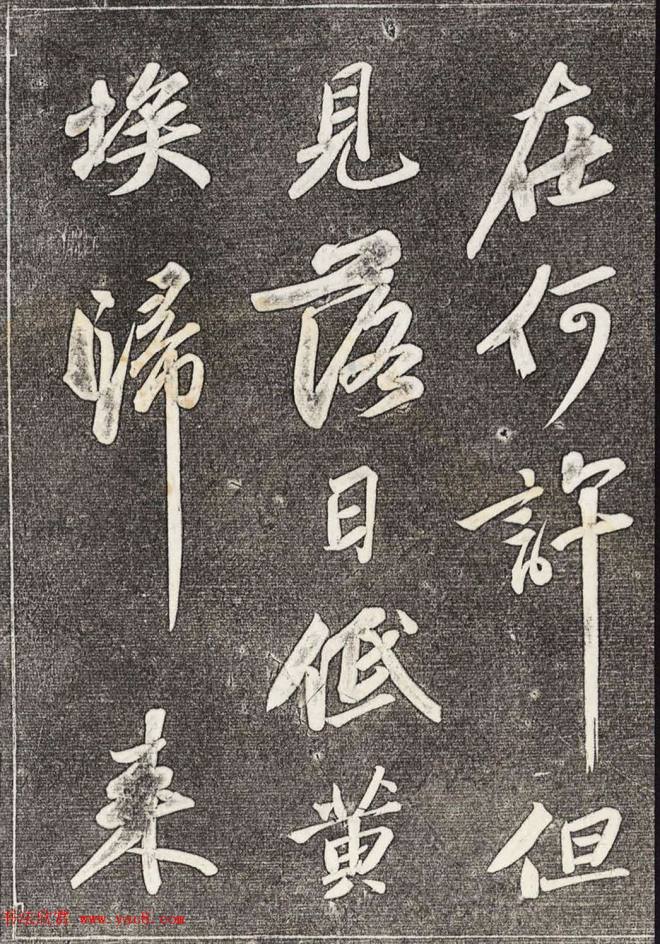 在何許但
見落日低黄
埃歸来
书法欣赏 www.yac8.com